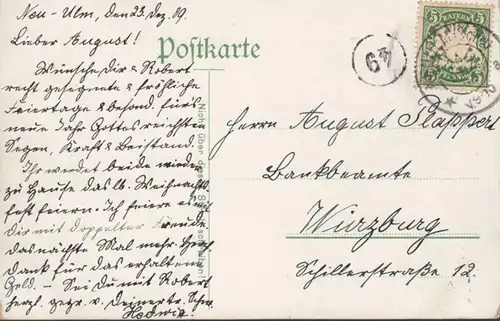 Neu-Ulm, den 23. Dez. 09.
Lieber August!
Postkarte
Wünsche Dir & Robert
recht gesegnete & fröhliche
Feiertage & besond. fürs
neue Jahr Gottes reichsten
Segen, Kraft & Beistand.
Ihr werdet beide wieder
zu Hause das lb. Weihnacht.
fest feiern. Ich feiere es mit
Dir mit doppelter Freude
das nächste Mal mehr. Herzl.
Dank für das erhaltene
Geld. - Sei Du mit Robert
herzl. gegr. v. Deiner tr. Schw.
Hedwig.
Nicht über diesen
49
BAYERN
5 5
PFENNIG
Herrn August Plappert
Bankbeamte
Würzburg
Schillerstraße 12.